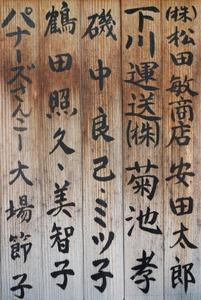 (株)松田敏商店 安田太郎
下川運送(株) 菊池孝
磯中良己・ミツ子
鶴田照久・美智子
パナーズさんこー 大場節子